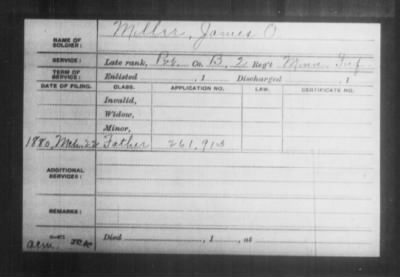 NAME OF SOLDIER: Miller, James O.
SERVICE: Late rank, Pvt. Co. B, 2 Reg't Minn. Inf.
TERM OF SERVICE: Enlisted , 1 Discharged , 1
DATE OF FILING. CLASS. APPLICATION NO. LAW. CERTIFICATE NO.
Invalid,
Widow,
Minor,
1880, Mch 22 Father 261,913
ADDITIONAL SERVICES:
REMARKS:
Died , 1 , at